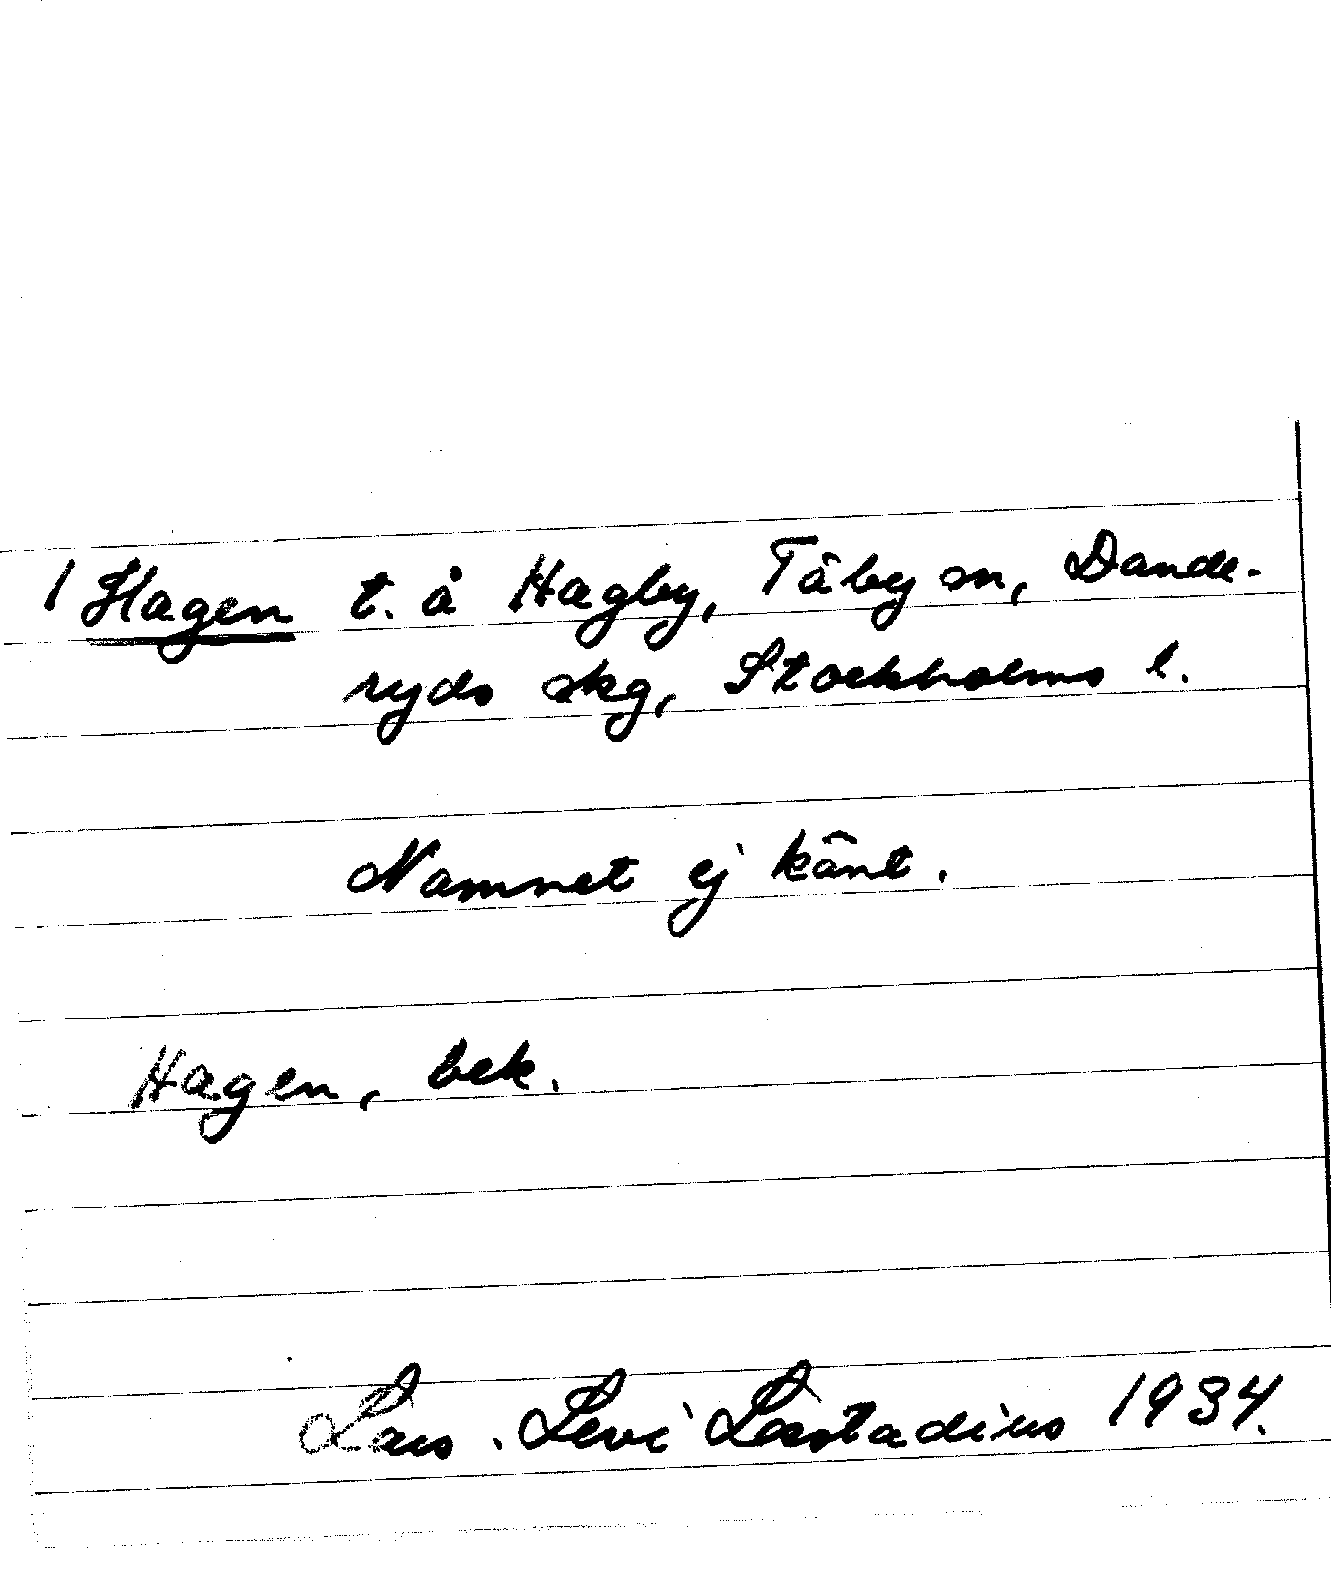 1 Hagen t. å Hagby, Täby sn, Dande-
ryds skg, Stockholms l.
Namnet ej känt.
Hagen, bek.
Lars. Levi Læstadius 1934.